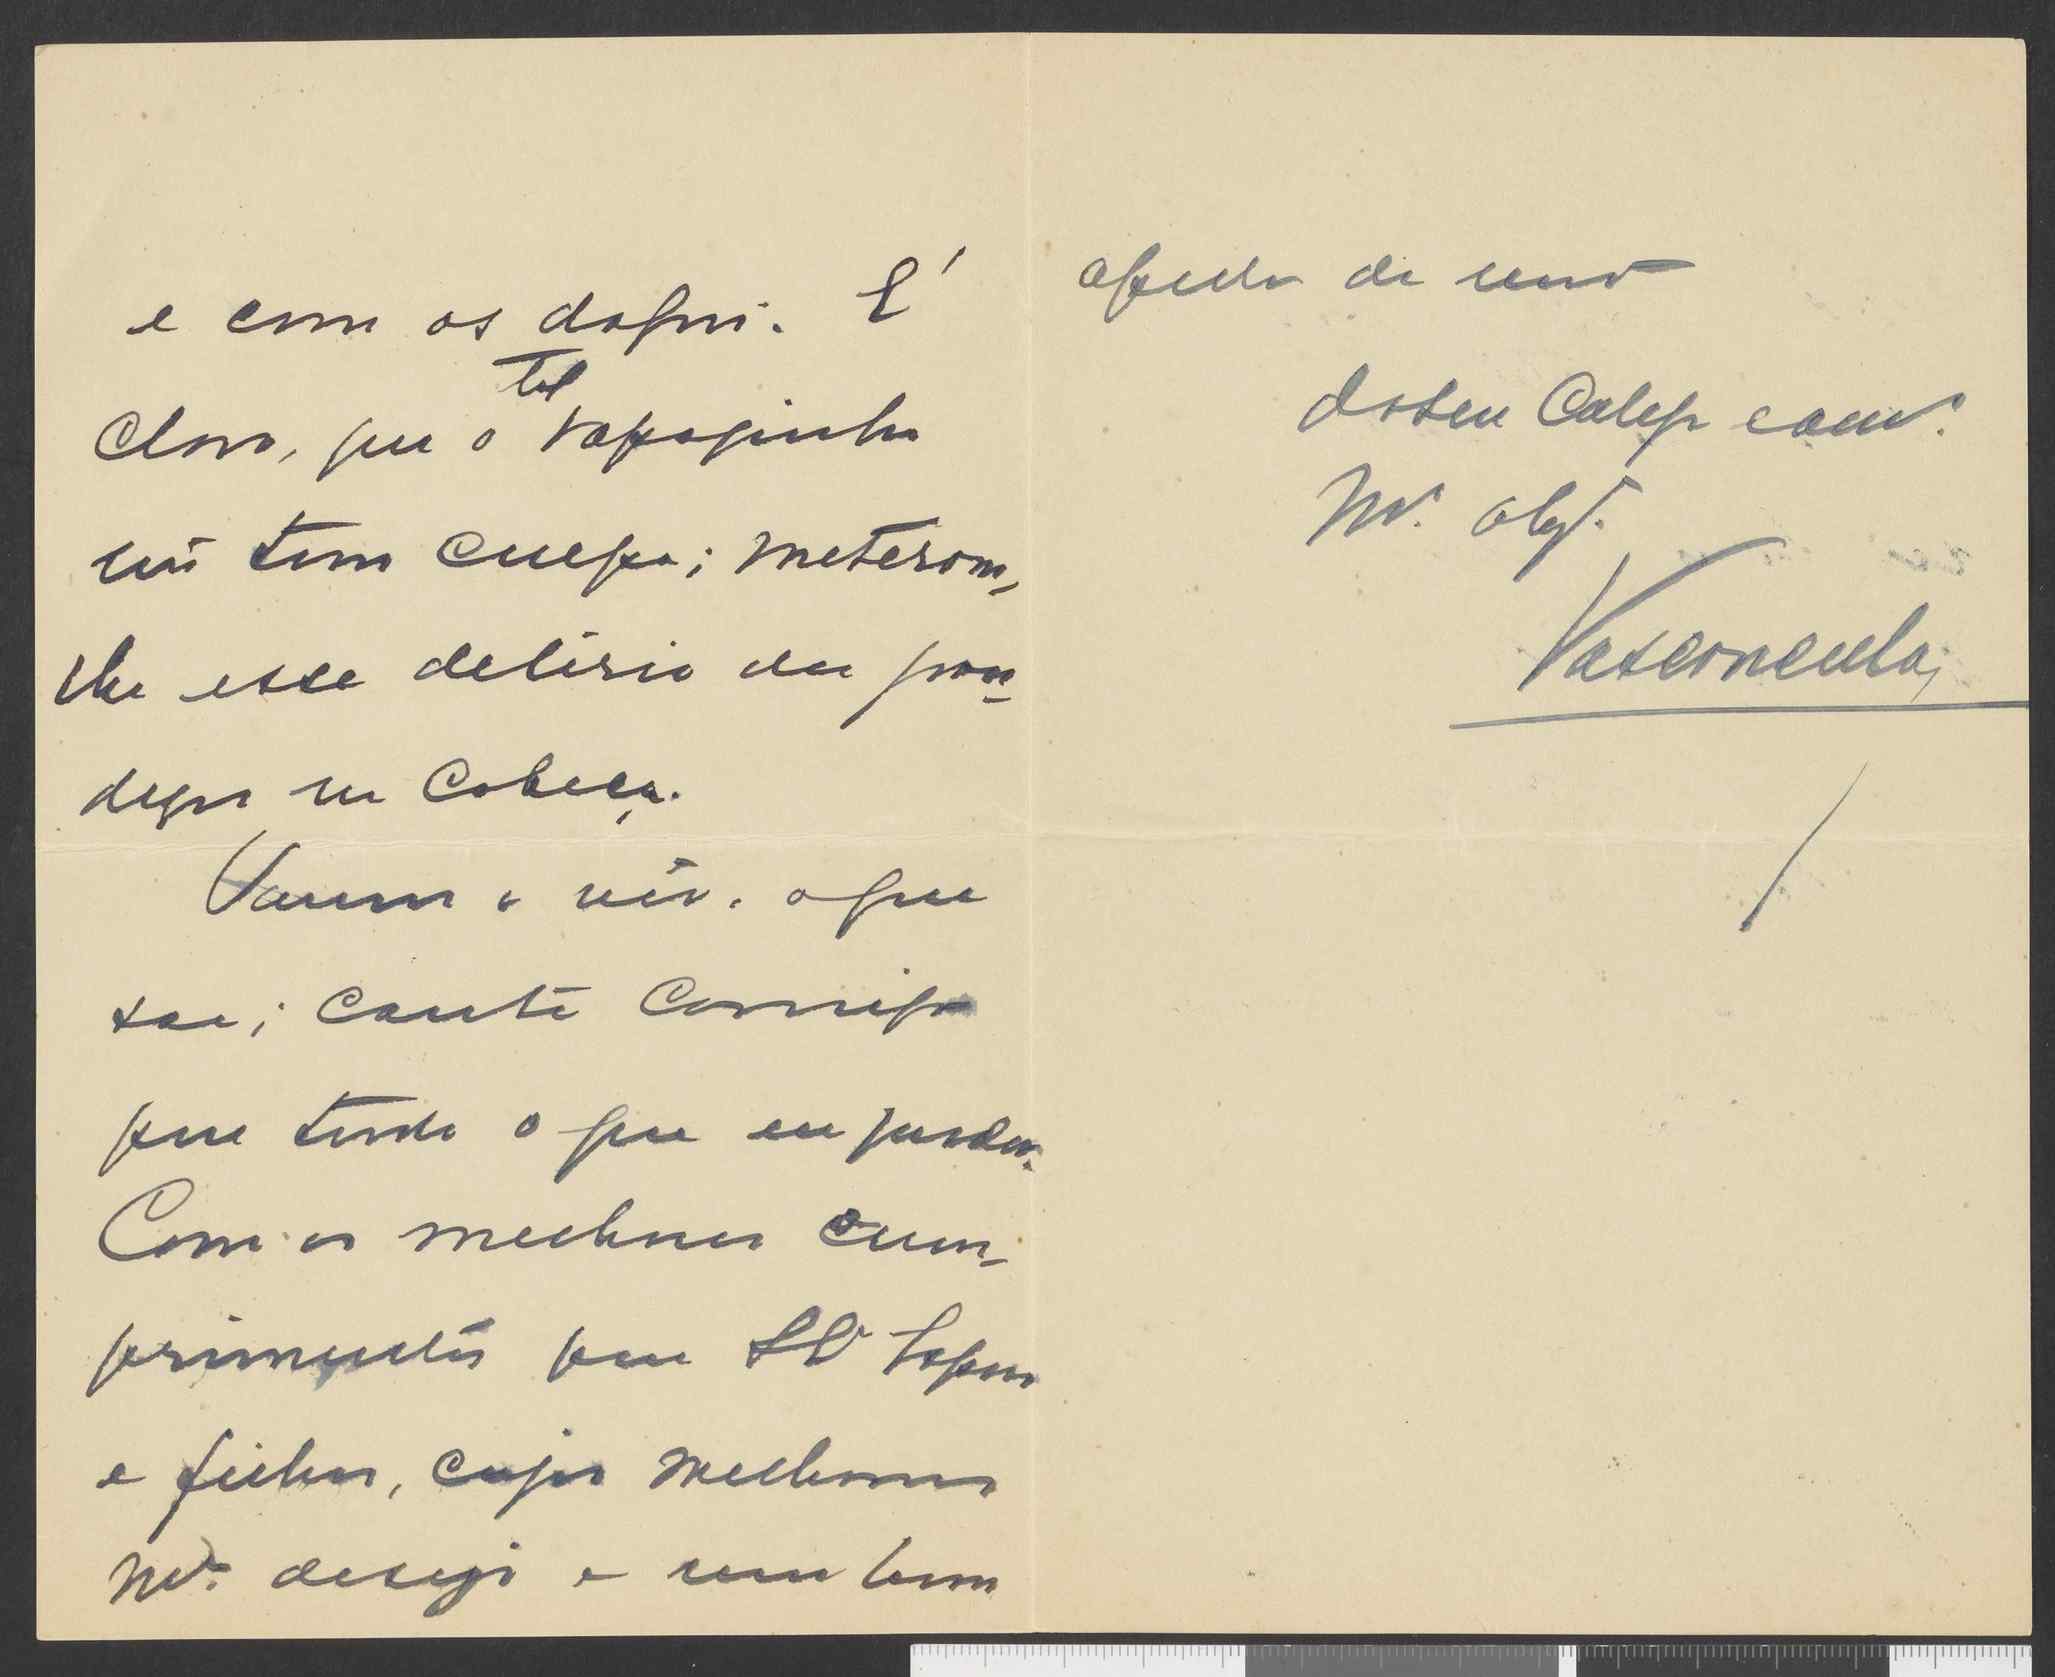 e com os daqui. É
claro, que o tal rapazinho
não tem culpa; meteram-
lhe esse delirio da gran-
deza na cabeça.
Vamos a vêr o que
sae; conte comigo
para tudo o que eu puder.
Com os melhores cum-
primentos para
e filhos, cujas melhoras
mto. desejo e um bom
aperto de mão
do seu Colega e am.º
Mt. obg.
Vasconcelos